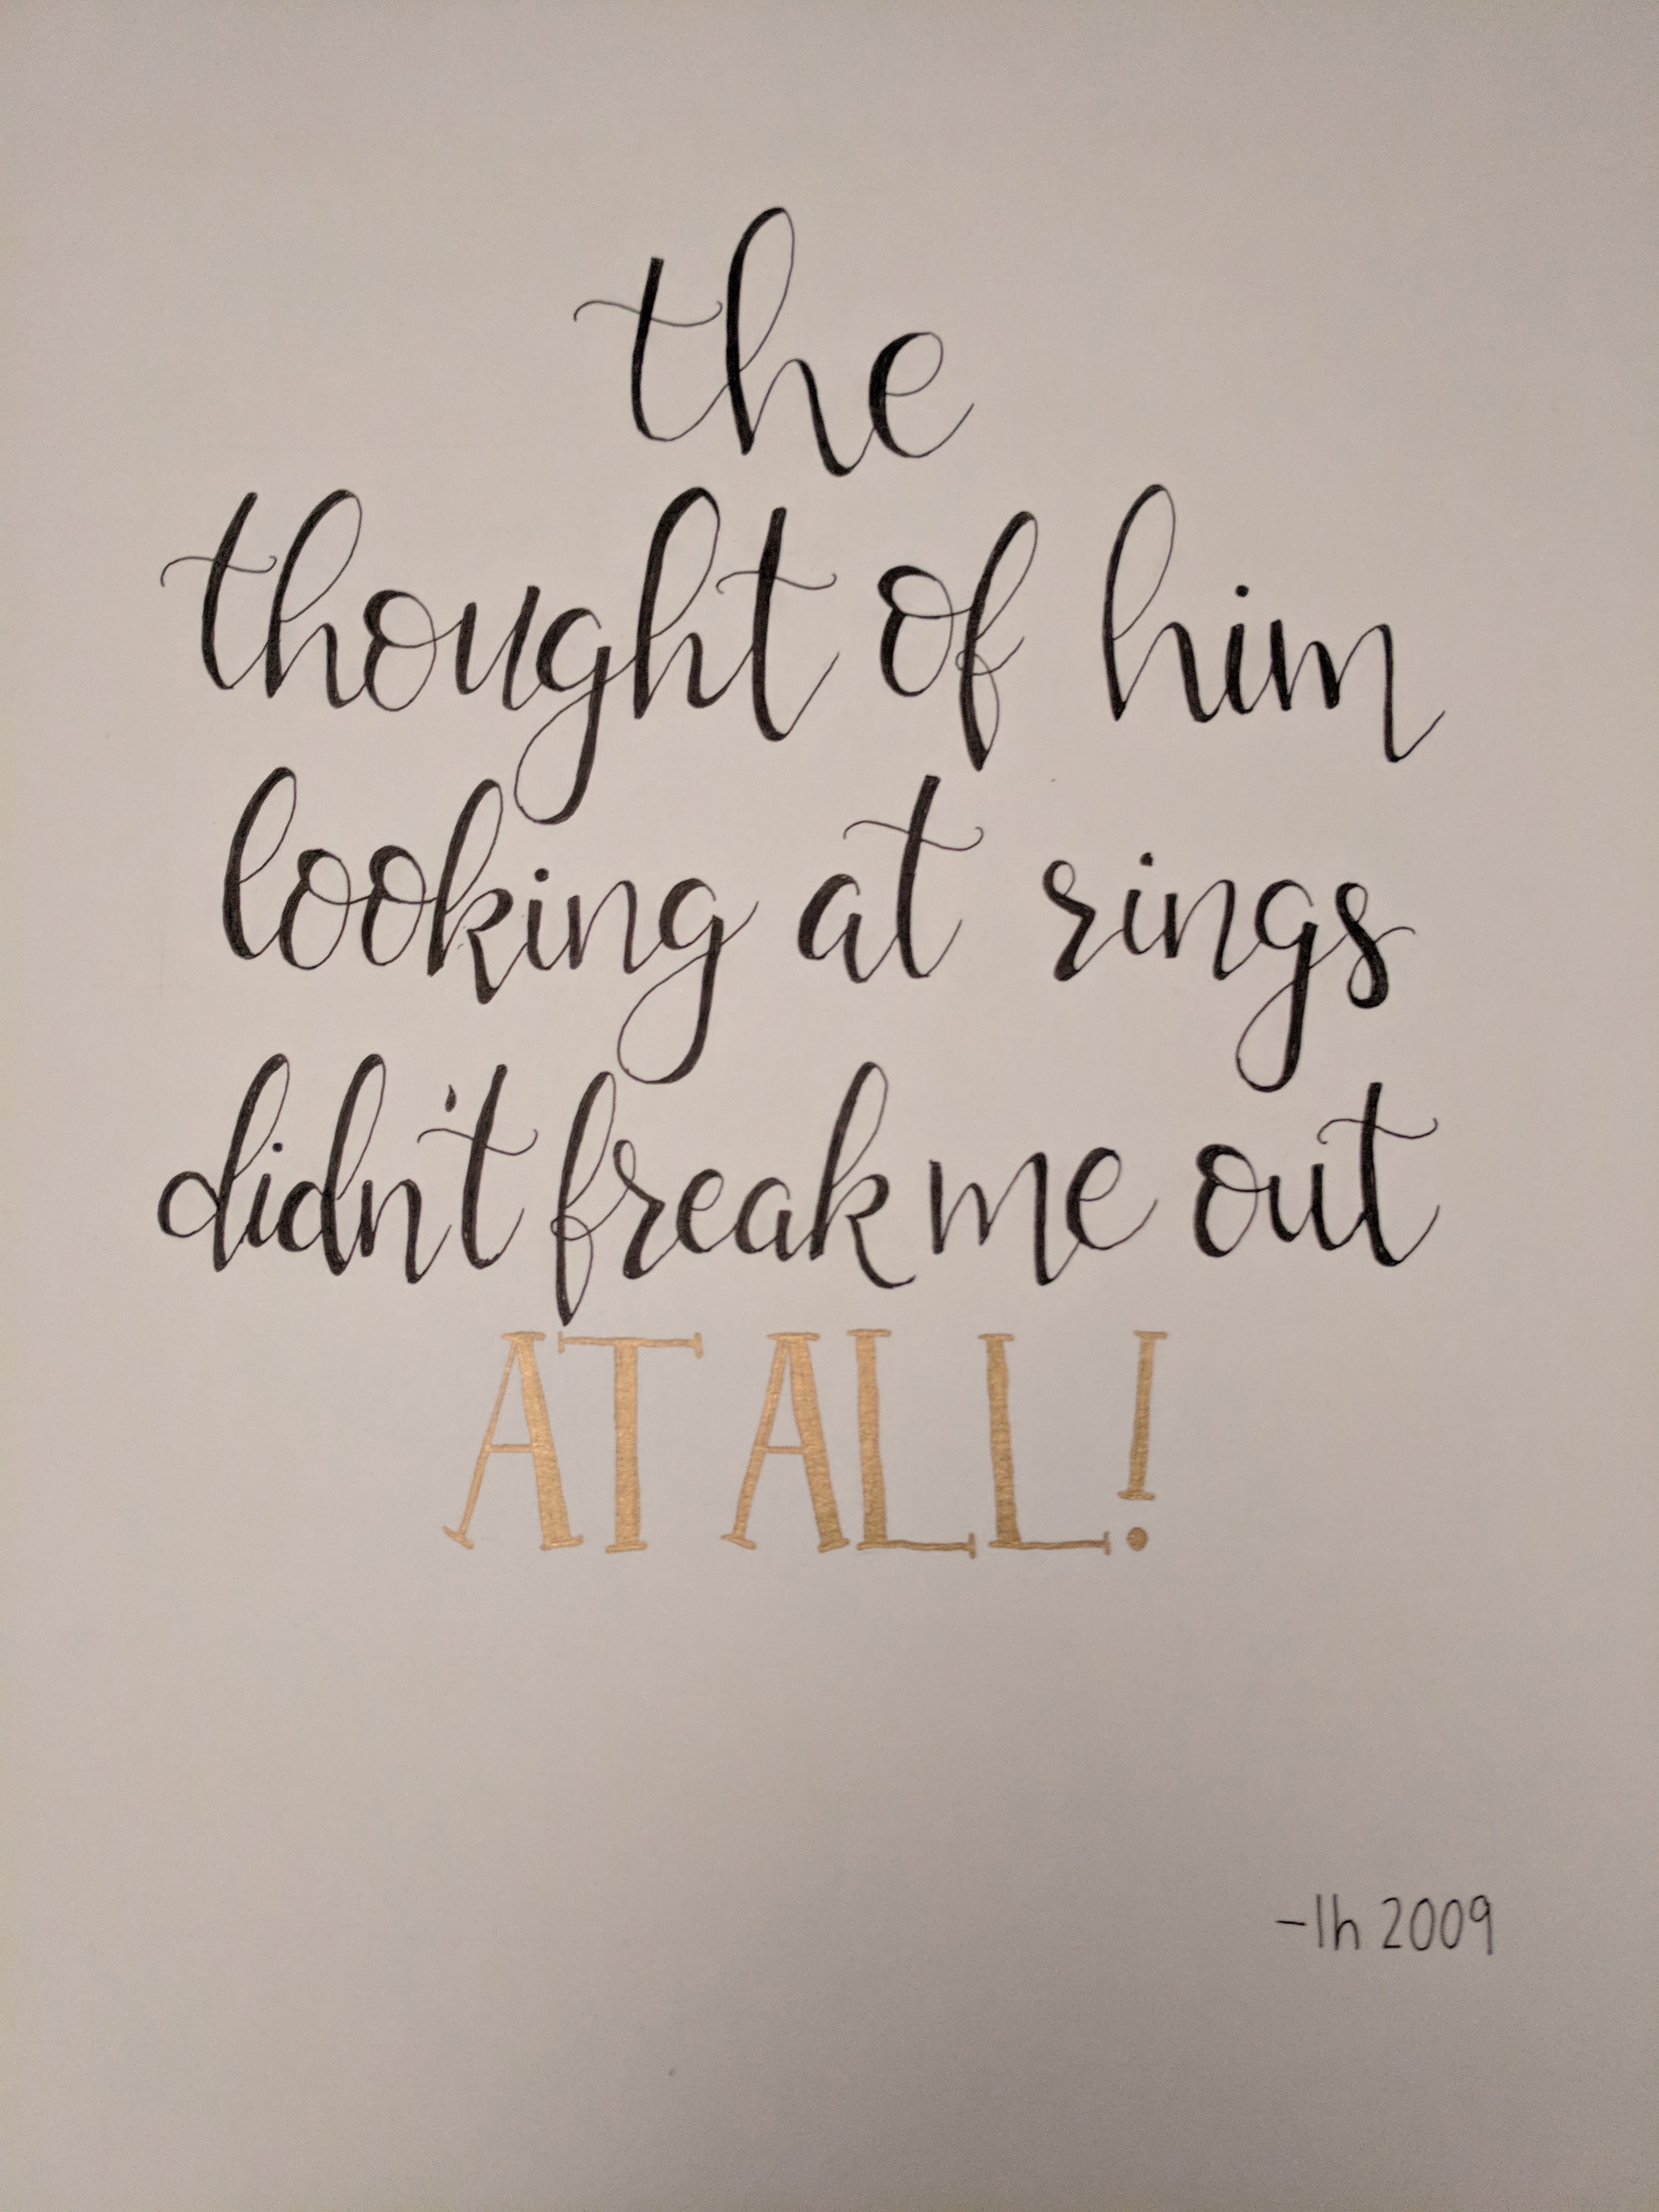 the
thought of him
looking at rings
didn't freak me out
AT ALL!
-lh 2009